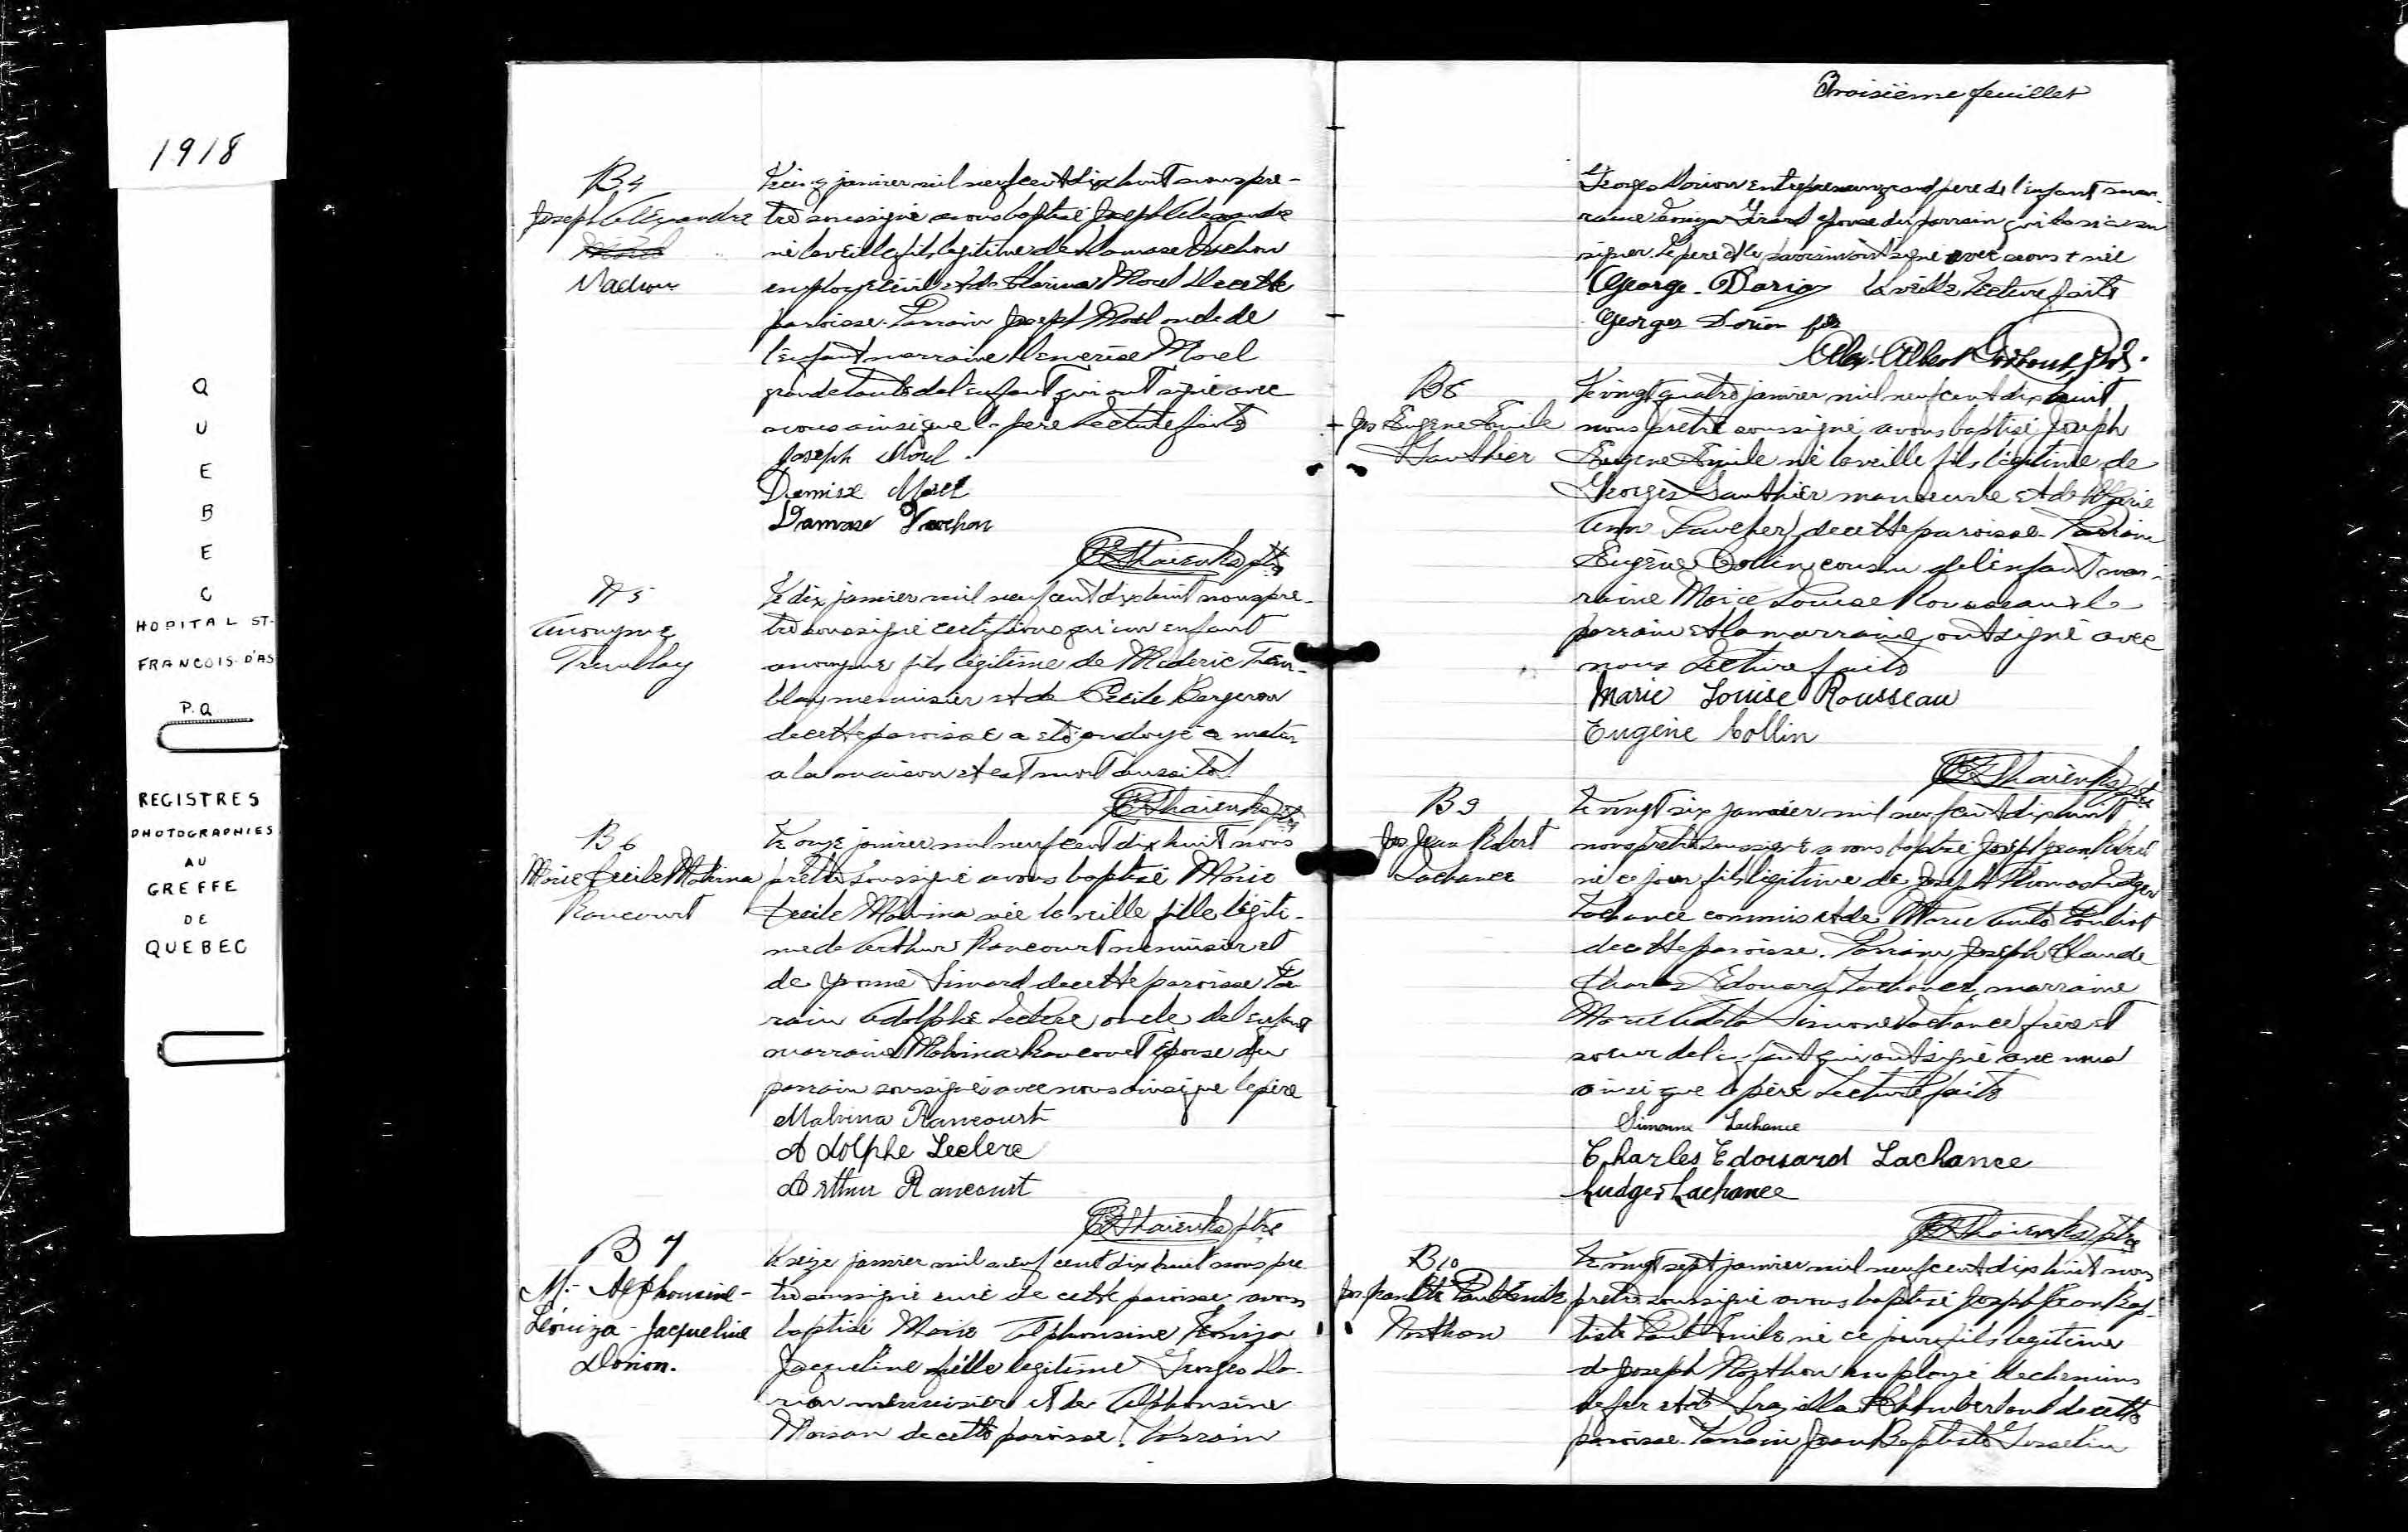 1918
QUEBEC
HOPITAL ST-
FRANCOIS D'AS
P.Q
REGISTRES
PHOTOGRAPHIES
AU
GREFFE
DE
QUEBEC
B4
Joseph Alexandre
Vachon
Le cinq janvier mil neuf cent dix huit nous pre-
tre soussigné avons baptisé Joseph Alexandre
né la veille fils legitime de Damase Vachon
employé civil et de Morel de cette
paroisse. Parrain Joseph Morel oncle de
l'enfant marraine Morel
grande tante de l'enfant qui ont signé avec
nous ainsi que le pere Lecture faite
Joseph Morel
Morel
Damase Vachon
ptre
N 5
Anonyme
Tremblay
Le dix janvier mil neuf cent dix huit nous pre-
tre soussigné certifions qu'un enfant
anonyme fils légitime de Mederic Trem-
blay menuisier et de Cecile Bergeron
de cette paroisse a eté ondoyé
a la maison et est mort aussitot
ptre
B 6
Marie Cecile Malvina
Rancourt
Le onze janvier mil neuf cent dix huit nous
prêtre soussigné avons baptisé Marie
Cecile Malvina née la veille fille légiti-
me de Arthur Rancourt menuisier et
de Yvonne Simard de cette paroisse Par
rain Adolphe Leclerc oncle de l'enfant
marraine Malvina Rancourt épouse du
parrain soussignés avec nous ainsi que le père
Malvina Rancourt
Adolphe Leclerc
Arthur Rancourt
ptre
B 7
M.- Alphonsine-
Léoniza - Jacqueline
Dorion.
Le seize janvier mil neuf cent dix huit nous pre
tre soussigné curé de cette paroisse avons
baptisé Marie Alphonsine Leoniza
Jacqueline fille legitime Georges Do-
rion menuisier et de Alphonsine
de cette paroisse. Parrain
Troisième feuillet
Georges Dorion entrepreneur grand pere de l'enfant mar-
raine Girard épouse du parrain qui
signer. Le pere et le parrain ont signé avec nous + née
George. Dorion la veille Lecture faite
Georges Dorion fils
Albert ptr.
B8
Jos Eugene Emile
Gauthier
Le vingt quatre janvier mil neuf cent dix huit
nous pretre soussigné avons baptisé Joseph
Eugene Emile né la veille fils légitime de
Georges Gauthier manoeuvre et de
Faucher de cette paroisse. Parrain
Eugène Collin cousin de l'enfant mar-
raine Marie Louise Rousseau le
parrain et la marraine ont signé avec
nous Lecture faite
Marie Louise Rousseau
Eugène Collin
ptre
B 9
Jos Jean Robert
Lachance
Le vingt six janvier mil neuf cent dix huit
nous prêtre soussigné avons baptisé Joseph Jean Robert
né ce jour fils légitime de Joseph Thomas Ludger
Lachance commis et de Marie Pouliot
de cette paroisse. Parrain Joseph Claude
Charles Edouard Lachance, marraine
Marie Simone Lachance frère et
soeur de l'enfant qui ont signé avec nous
ainsi que le père Lecture faite
Simonne Lachance
Charles Edouard Lachance
Ludger Lachance
ptre
B10
Jos. Jean Bte Paul Emile
Le vingt sept janvier mil neuf cent dix huit nous
prêtre soussigné avons baptisé Joseph Jean Bap-
tiste Paul Emile né ce jour fils legitime
de Joseph employé de chemins
de fer et de de cette
paroisse. Parrain Jean Baptiste Gosselin